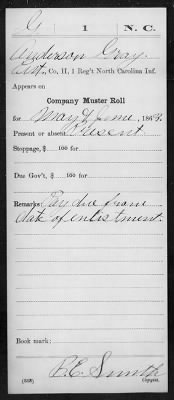 G | 1 | N.C.
Anderson Gray
Co. H, 1 Reg't North Carolina Inf.
Appears on
Company Muster Roll
for May & June, 186
Present or absent Present
Stoppage, $ 100 for
Due Gov't, $ 100 for
Remarks: Pay due from
date of enlistment.
Book mark:
R.E. Smith
(358) Copyist.